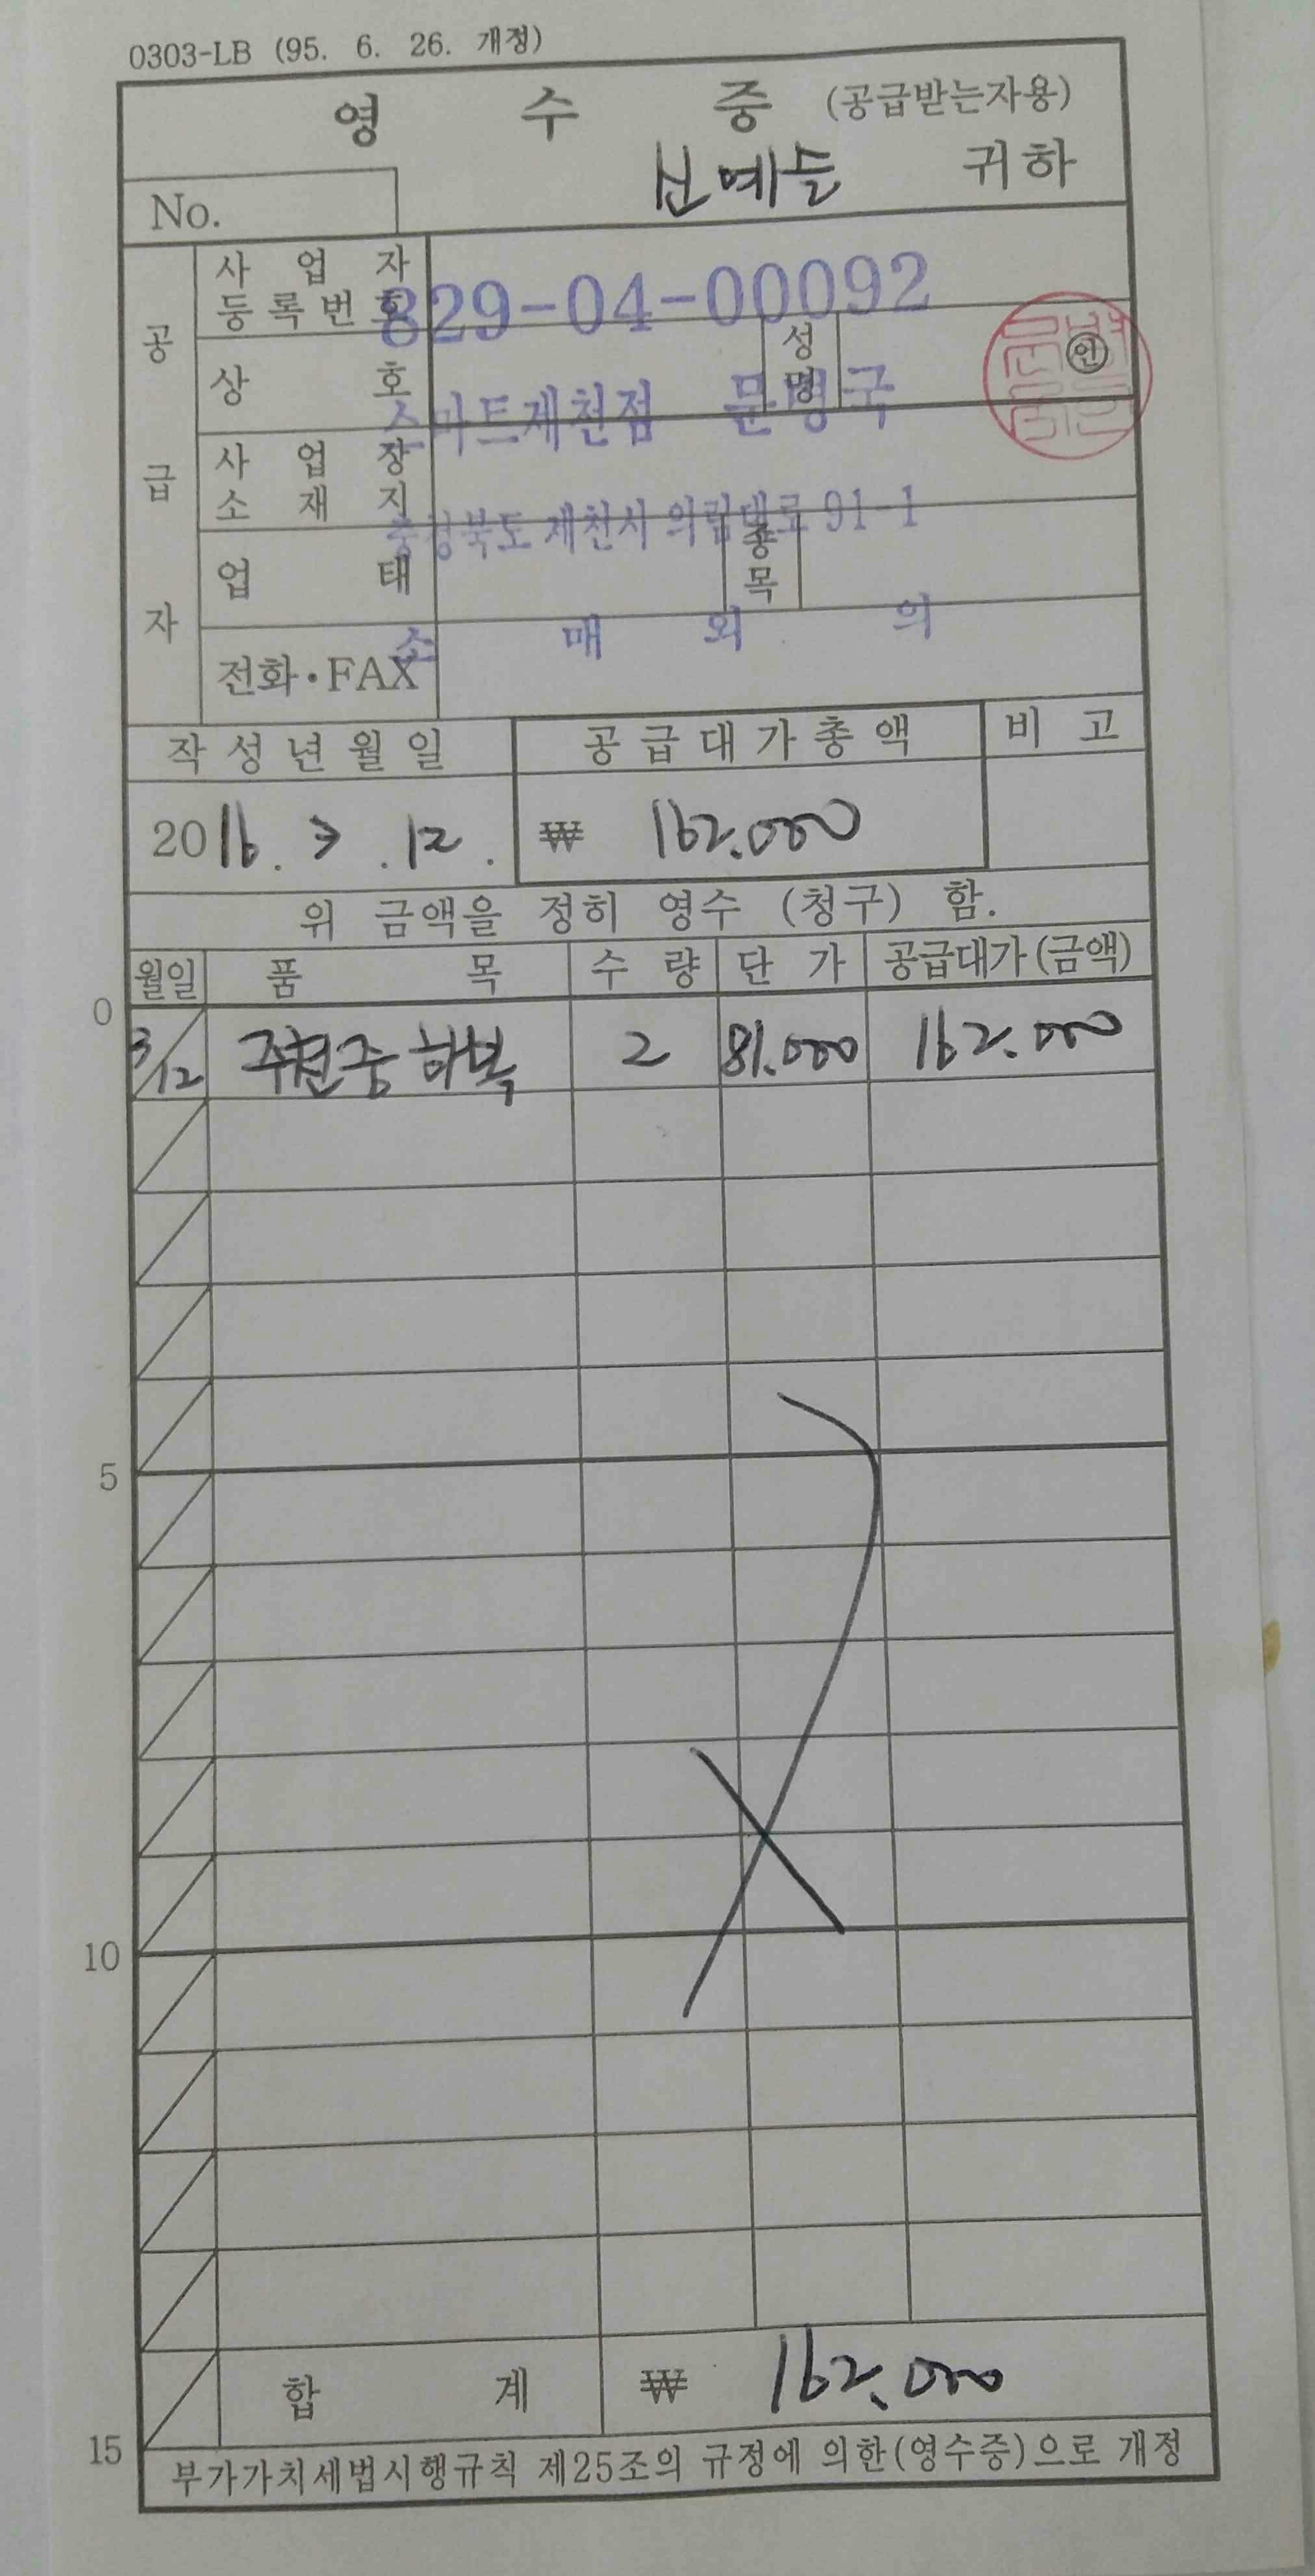 0303-LB (95. 6. 26. 개정)
영 수 증 (공급받는자용)
귀하
No.
공급자
사업자등록번호 829-04-00092
상호 스마트제천점 성명 문병국 ㊞
사업장소재지 충청북도 제천시 의림대로 91-1
업태 소매 종목 외 의
전화·FAX
작성년월일 공급대가총액 비고
2016. 3. 12. ₩ 162.000
위 금액을 정히 영수 (청구) 함.
월일 품목 수량 단가 공급대가(금액)
0
3/12 하복 2 81.000 162.000
5
10
합계 ₩ 162.000
15
부가가치세법시행규칙 제25조의 규정에 의한(영수증)으로 개정